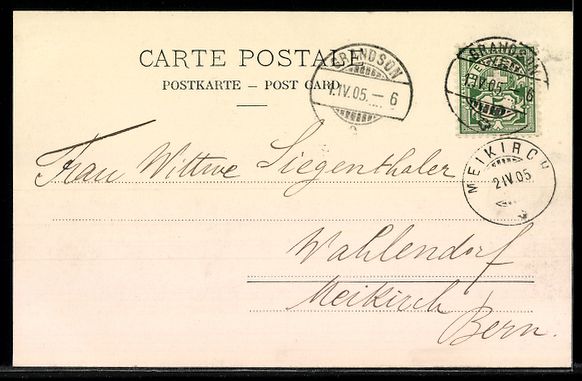 CARTE POSTALE
POSTKARTE – POST CARD
GRANDSON
1.IV.05.–6
GRANDSON
1.IV.05.–6
MEIKIRCH
2.IV.05
Frau Wittwe Siegenthaler
Wahlendorf
Meikirch
Bern.